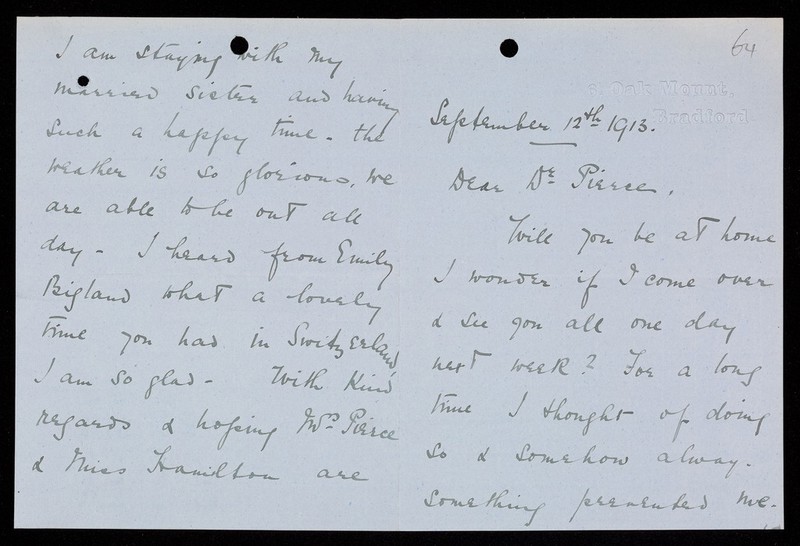 64
3, Oak Mount.
Bradford.
September 12th 1913.
Dear Dr Pierce,
Will you be at home
I wonder if I come over
& see you all one day
next week? For a long
time I thought of doing
so & somehow alway.
something prevented me.
I am staying with my
married sister and having
such a happy time - the
weather is so glorious, we
are able to be out all
day - I heard from Emily
Bigland what a lovely
time you had in Switzerland,
I am so glad - With kind
regards & hoping Mrs Pierce
& Miss Hamilton are